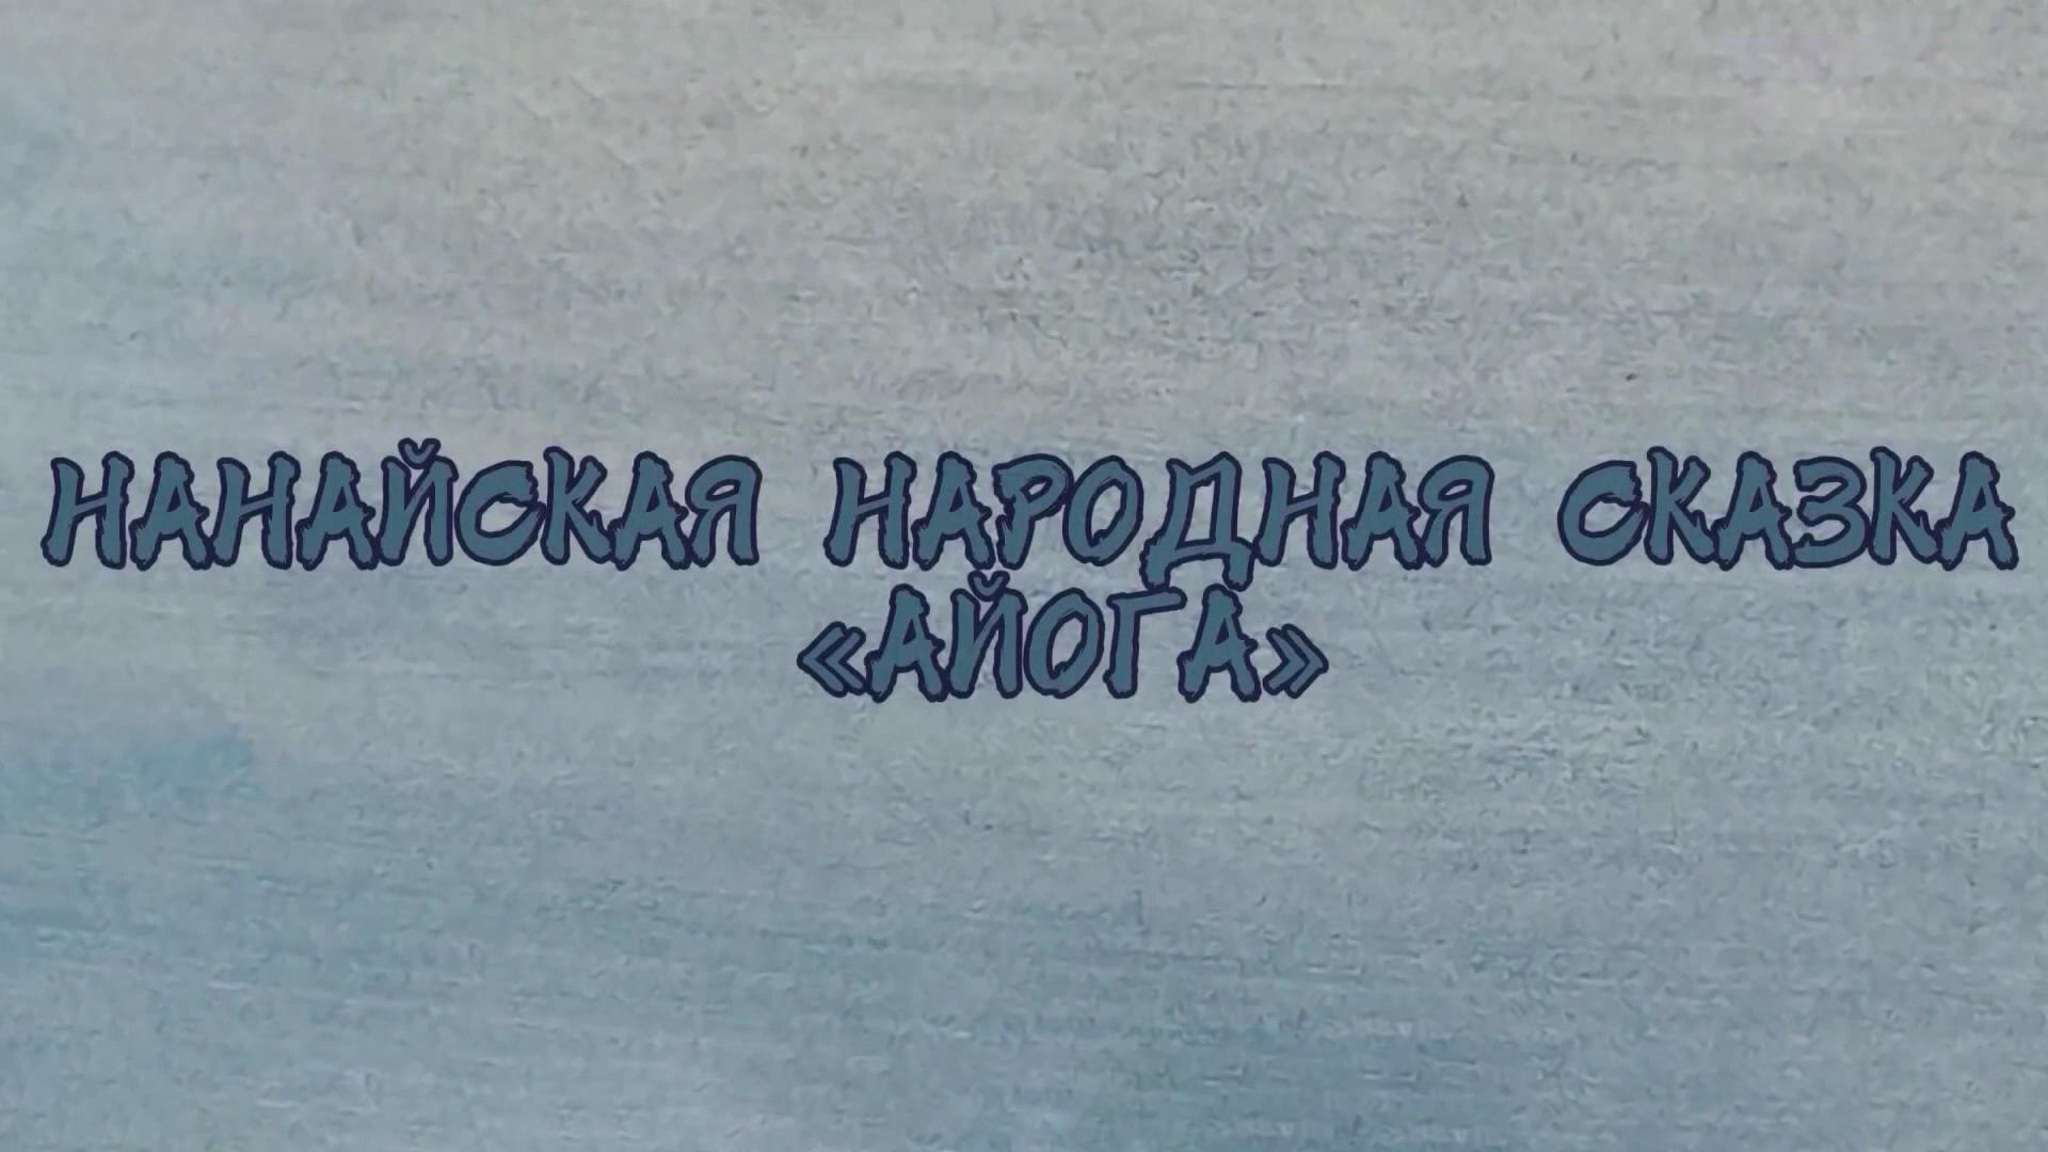 НАНАЙСКАЯ НАРОДНАЯ СКАЗКА
«АЙОГА»